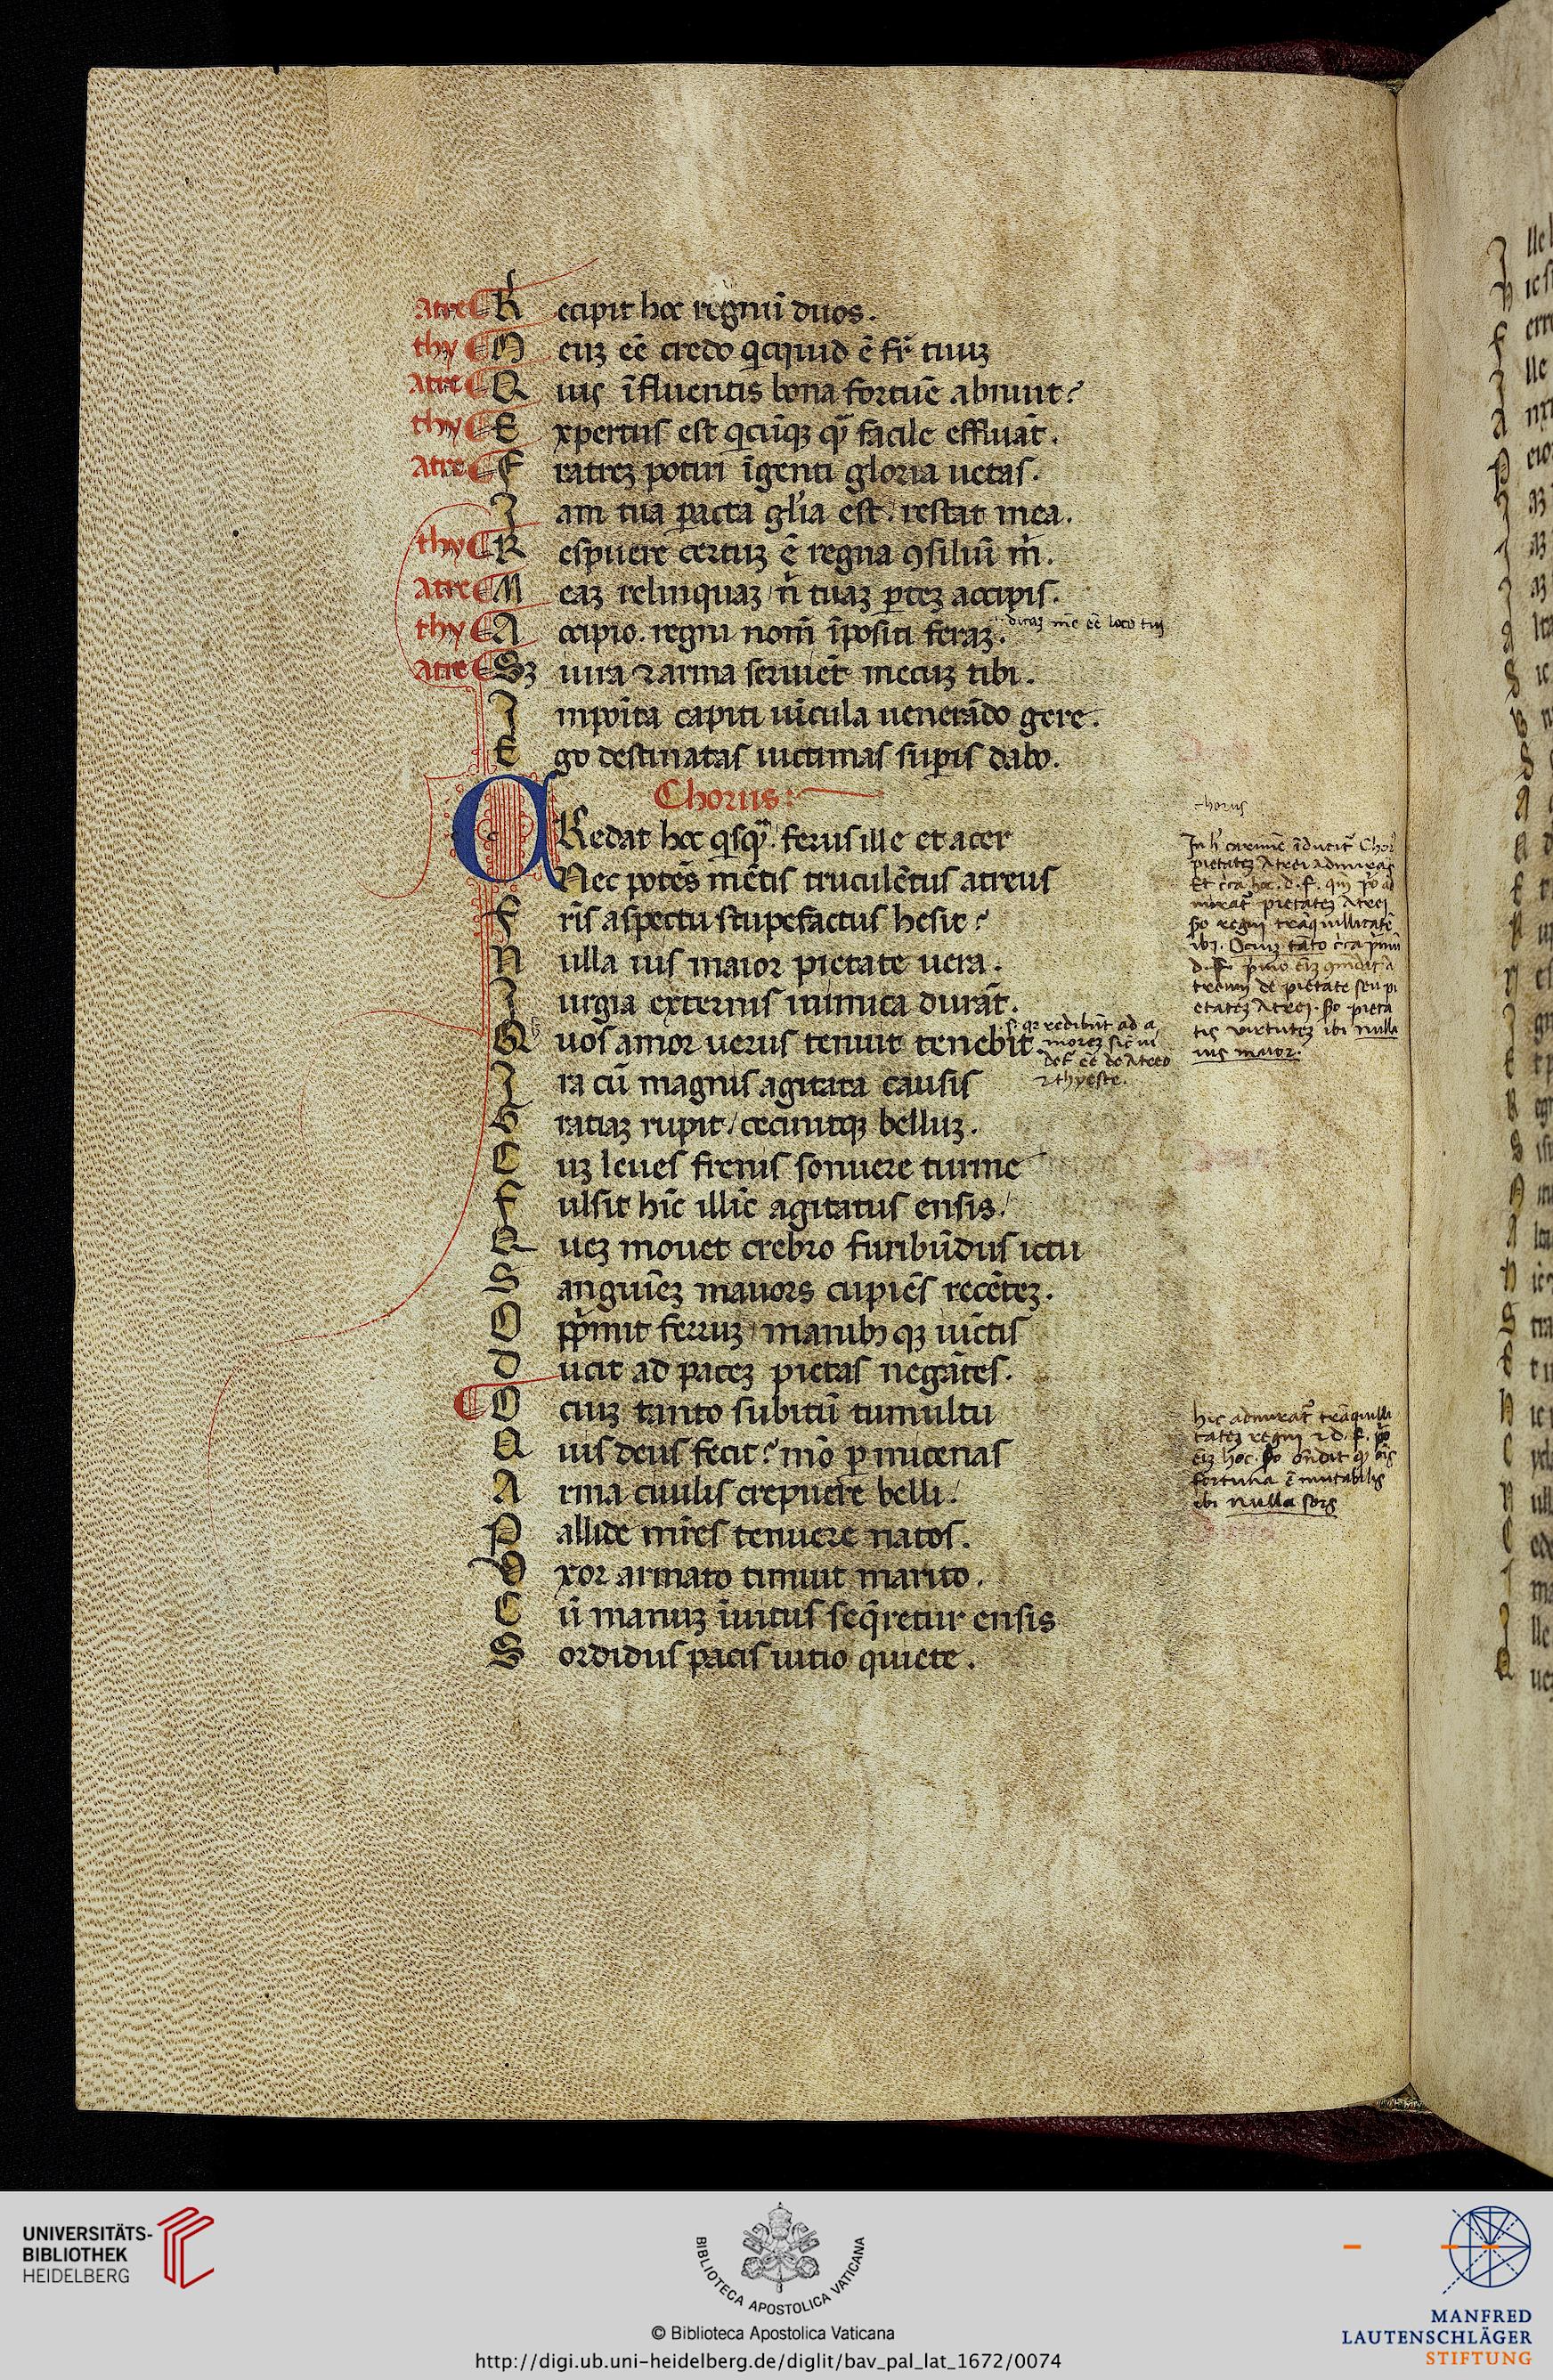 atre R ecipit hoc regnū duos.
thy M euʒ eē credo qicquid ē fr̄ tuuʒ
atre Q uis īfluentis bona fortūe abnuit?
thy E xpertus est qicūqʒ qm̄ facile effluāt.
atre F ratreʒ potiri īgenti gloria uetas.
I am tua pacta glīa est / restat mea.
thy R espuere certuʒ ē regna ↄsiliū m̄.
atre M eaʒ relinquaʒ / n̄ tuaʒ ꝑteʒ accipis.
thy A ccipio. regni nom̄ īpositi feraʒ.
dicaʒ me eē loco tui
atre Sʒ iura ⁊ arma seruiēt mecuʒ tibi.
I mpoīta capiti uīcula uenerādo gere.
E go destinatas uictimas supis dabo.
Chorus:
C Redat hoc qisqm̄. ferus ille et acer
Nec potēs mētis truculētus atreus
F rīs aspectu stupefactus hesit?
N ulla uis maior pietate uera.
I urgia externis inimica durāt.
Q uos amor uerus tenuit tenebit
.s. qr redibūt ad a
morez sic̄ ui
def eē de Atreo
⁊ thyeste.
I ra cū magnis agitata causis
G ratiaʒ rupit / cecinitqʒ belluʒ.
C uʒ leues frenis sonuere turme
F ulsit hīc illīc agitatus ensis /
Q ueʒ mouet crebro furibūdus ictu
S anguīeʒ mauors cupiēs recēteʒ.
O pp̄mit ferruʒ / manibꝫ qʒ iūctis
D ucit ad paceʒ pietas negātes.
O ciuʒ tanto subitū tumultu
Q uis deus fecit? mō ꝑ micenas
A rma ciuilis crepuere belli /
P allide mr̄es tenuere natos.
V xor armato timuit marito.
C ū manuʒ īuitus seq̄retur ensis
S ordidus pacis uitio quiete.
chorus
In h̄ carmīe īducit̄ Chor
pietateʒ Atrei admiras
Et c̄ca hoc. d. f. qm̄ pº ad
mirat̄ pietateʒ Atrei
so regni trāquillitatē
ibi. Ociuʒ tāto c̄ca pimū
etateʒ Atrei. so pieta
tis virtuteʒ ibi nulla
uis maior.
hic admirat̄ trāquilli
tateʒ regni ⁊ d. f. pº
eiʒ hoc. so ōndit qʒ oīs
fortuna ē mutabilis
ibi nulla sors
UNIVERSITÄTS-
BIBLIOTHEK
HEIDELBERG
BIBLIOTECA APOSTOLICA VATICANA
© Biblioteca Apostolica Vaticana
http://digi.ub.uni-heidelberg.de/diglit/bav_pal_lat_1672/0074
MANFRED
LAUTENSCHLÄGER
STIFTUNG